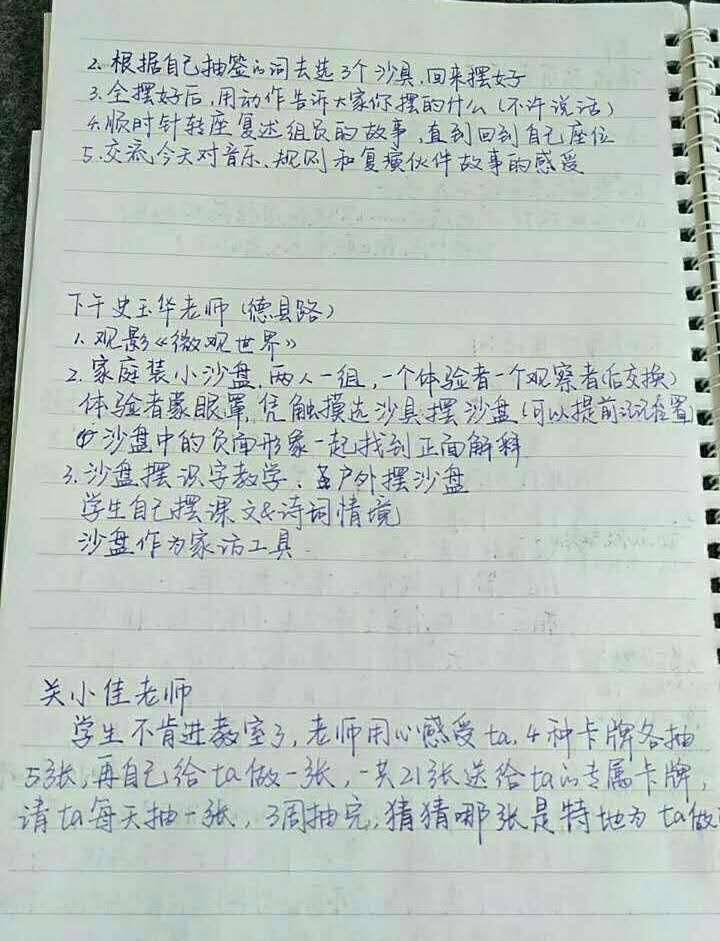 2. 根据自己抽签的词去选3个沙具,回来摆好
3. 全摆好后,用动作告诉大家你摆的什么(不许说话)
4. 顺时针转座复述组员的故事,直到回到自己座位
5. 交流今天对音乐、规则和复演伙伴故事的感受
下午史玉华老师(德县路)
1. 观影《微观世界》
2. 家庭装小沙盘,两人一组,一个体验者一个观察者(后交换)
体验者蒙眼罩,凭触摸选沙具摆沙盘(可以提前记记位置)
沙盘中的负面形象一起找到正面解释
3. 沙盘摆识字教学、户外摆沙盘
学生自己摆课文&诗词情境
沙盘作为家访工具
关小佳老师
学生不肯进教室了,老师用心感受ta,4种卡牌各抽
5张,再自己给ta做一张,一共21张送给ta的专属卡牌,
请ta每天抽一张,3周抽完,猜猜哪张是特地为ta做